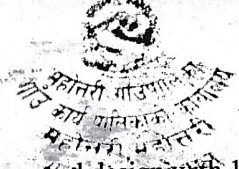 महोत्तरी गाउँपालिका
गाउँ कार्यपालिकाको कार्यालय
महोत्तरी महोत्तरी